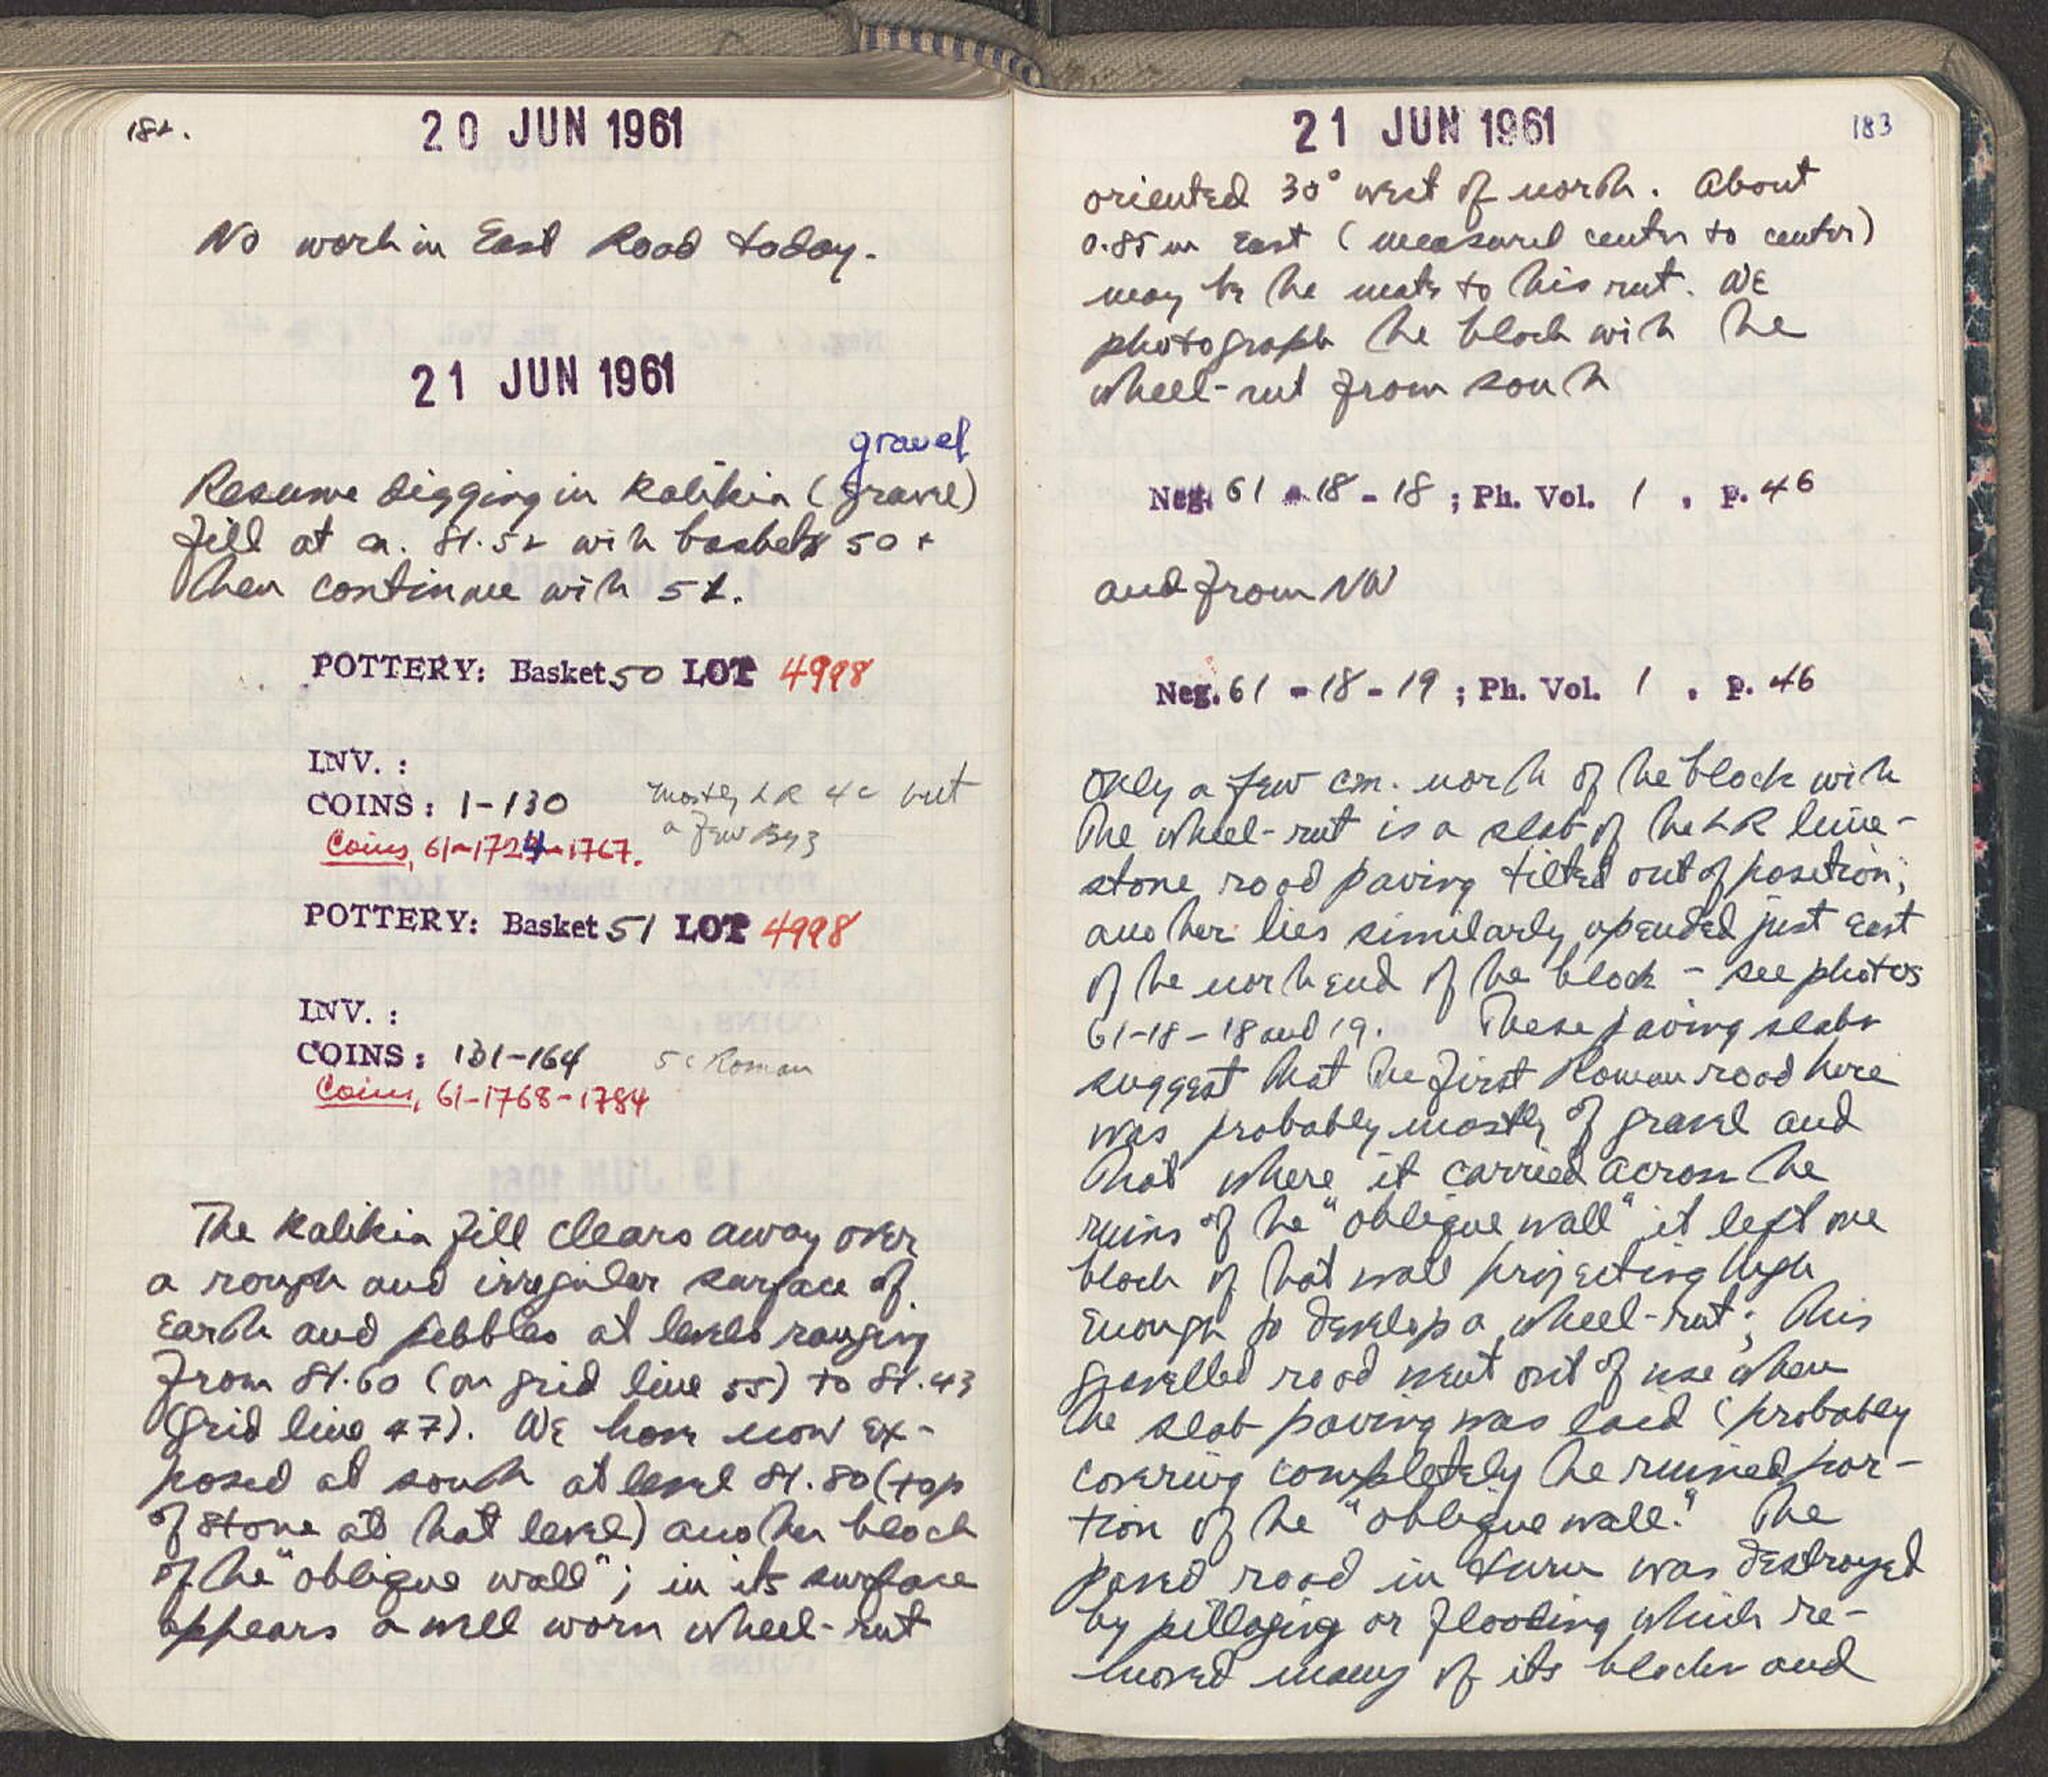 182.
20 JUN 1961
No work in East Road today.
21 JUN 1961
gravel
Resume digging in kalikia (gravel)
fill at ca. 81.52 with baskets 50 +
then continue with 51.
POTTERY: Basket 50 LOT 4998
INV. :
COINS: 1-130 mostly LR 4c but
a few Byz
Coins, 61-1724-1767.
POTTERY: Basket 51 LOT 4998
INV. :
COINS: 131-164 5c Roman
Coins, 61-1768-1784
The kalikia fill clears away over
a rough and irregular surface of
earth and pebbles at levels ranging
from 81.60 (on grid line 55) to 81.43
(grid line 47). We have now ex-
posed at south at level 81.80 (top
of stone at that level) another block
of the "oblique wall"; in its surface
appears a well worn wheel-rut
21 JUN 1961
183
oriented 30° west of north. About
0.85 m east (measured center to center)
may be the mate to this rut. We
photograph the block with the
wheel-rut from south
Neg. 61 - 18 - 18 ; Ph. Vol. 1 , p. 46
and from NW
Neg. 61 - 18 - 19 ; Ph. Vol. 1 , p. 46
Only a few cm. north of the block with
the wheel-rut is a slab of the LR lime-
stone road paving tilted out of position;
another lies similarly upended just east
of the north end of the block - see photos
61-18-18 and 19. These paving slabs
suggest that the first Roman road here
was probably mostly of gravel and
that where it carried across the
ruins of the "oblique wall" it left one
block of that wall projecting high
enough to develop a wheel-rut; this
gravelled road went out of use when
the slab paving was laid (probably
covering completely the ruined por-
tion of the "oblique wall." The
paved road in turn was destroyed
by pillaging or flooding which re-
moved many of its blocks and